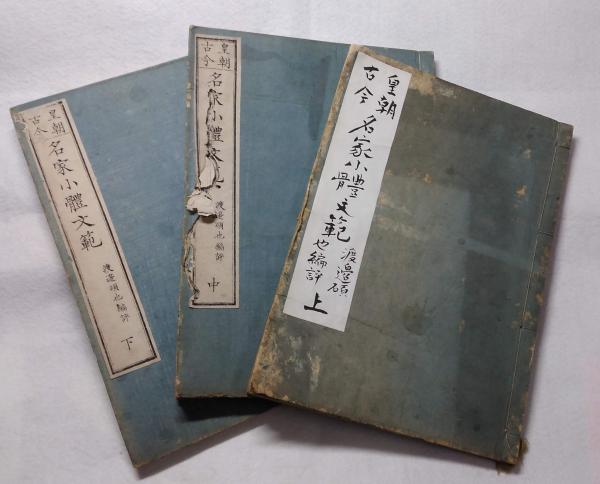 皇朝
古今
名家小體文範
渡邉碩
也編評
上
皇朝
古今
名家小體文
渡邉碩也編評
中
皇朝
古今
名家小體文範
渡邉碩也編評
下